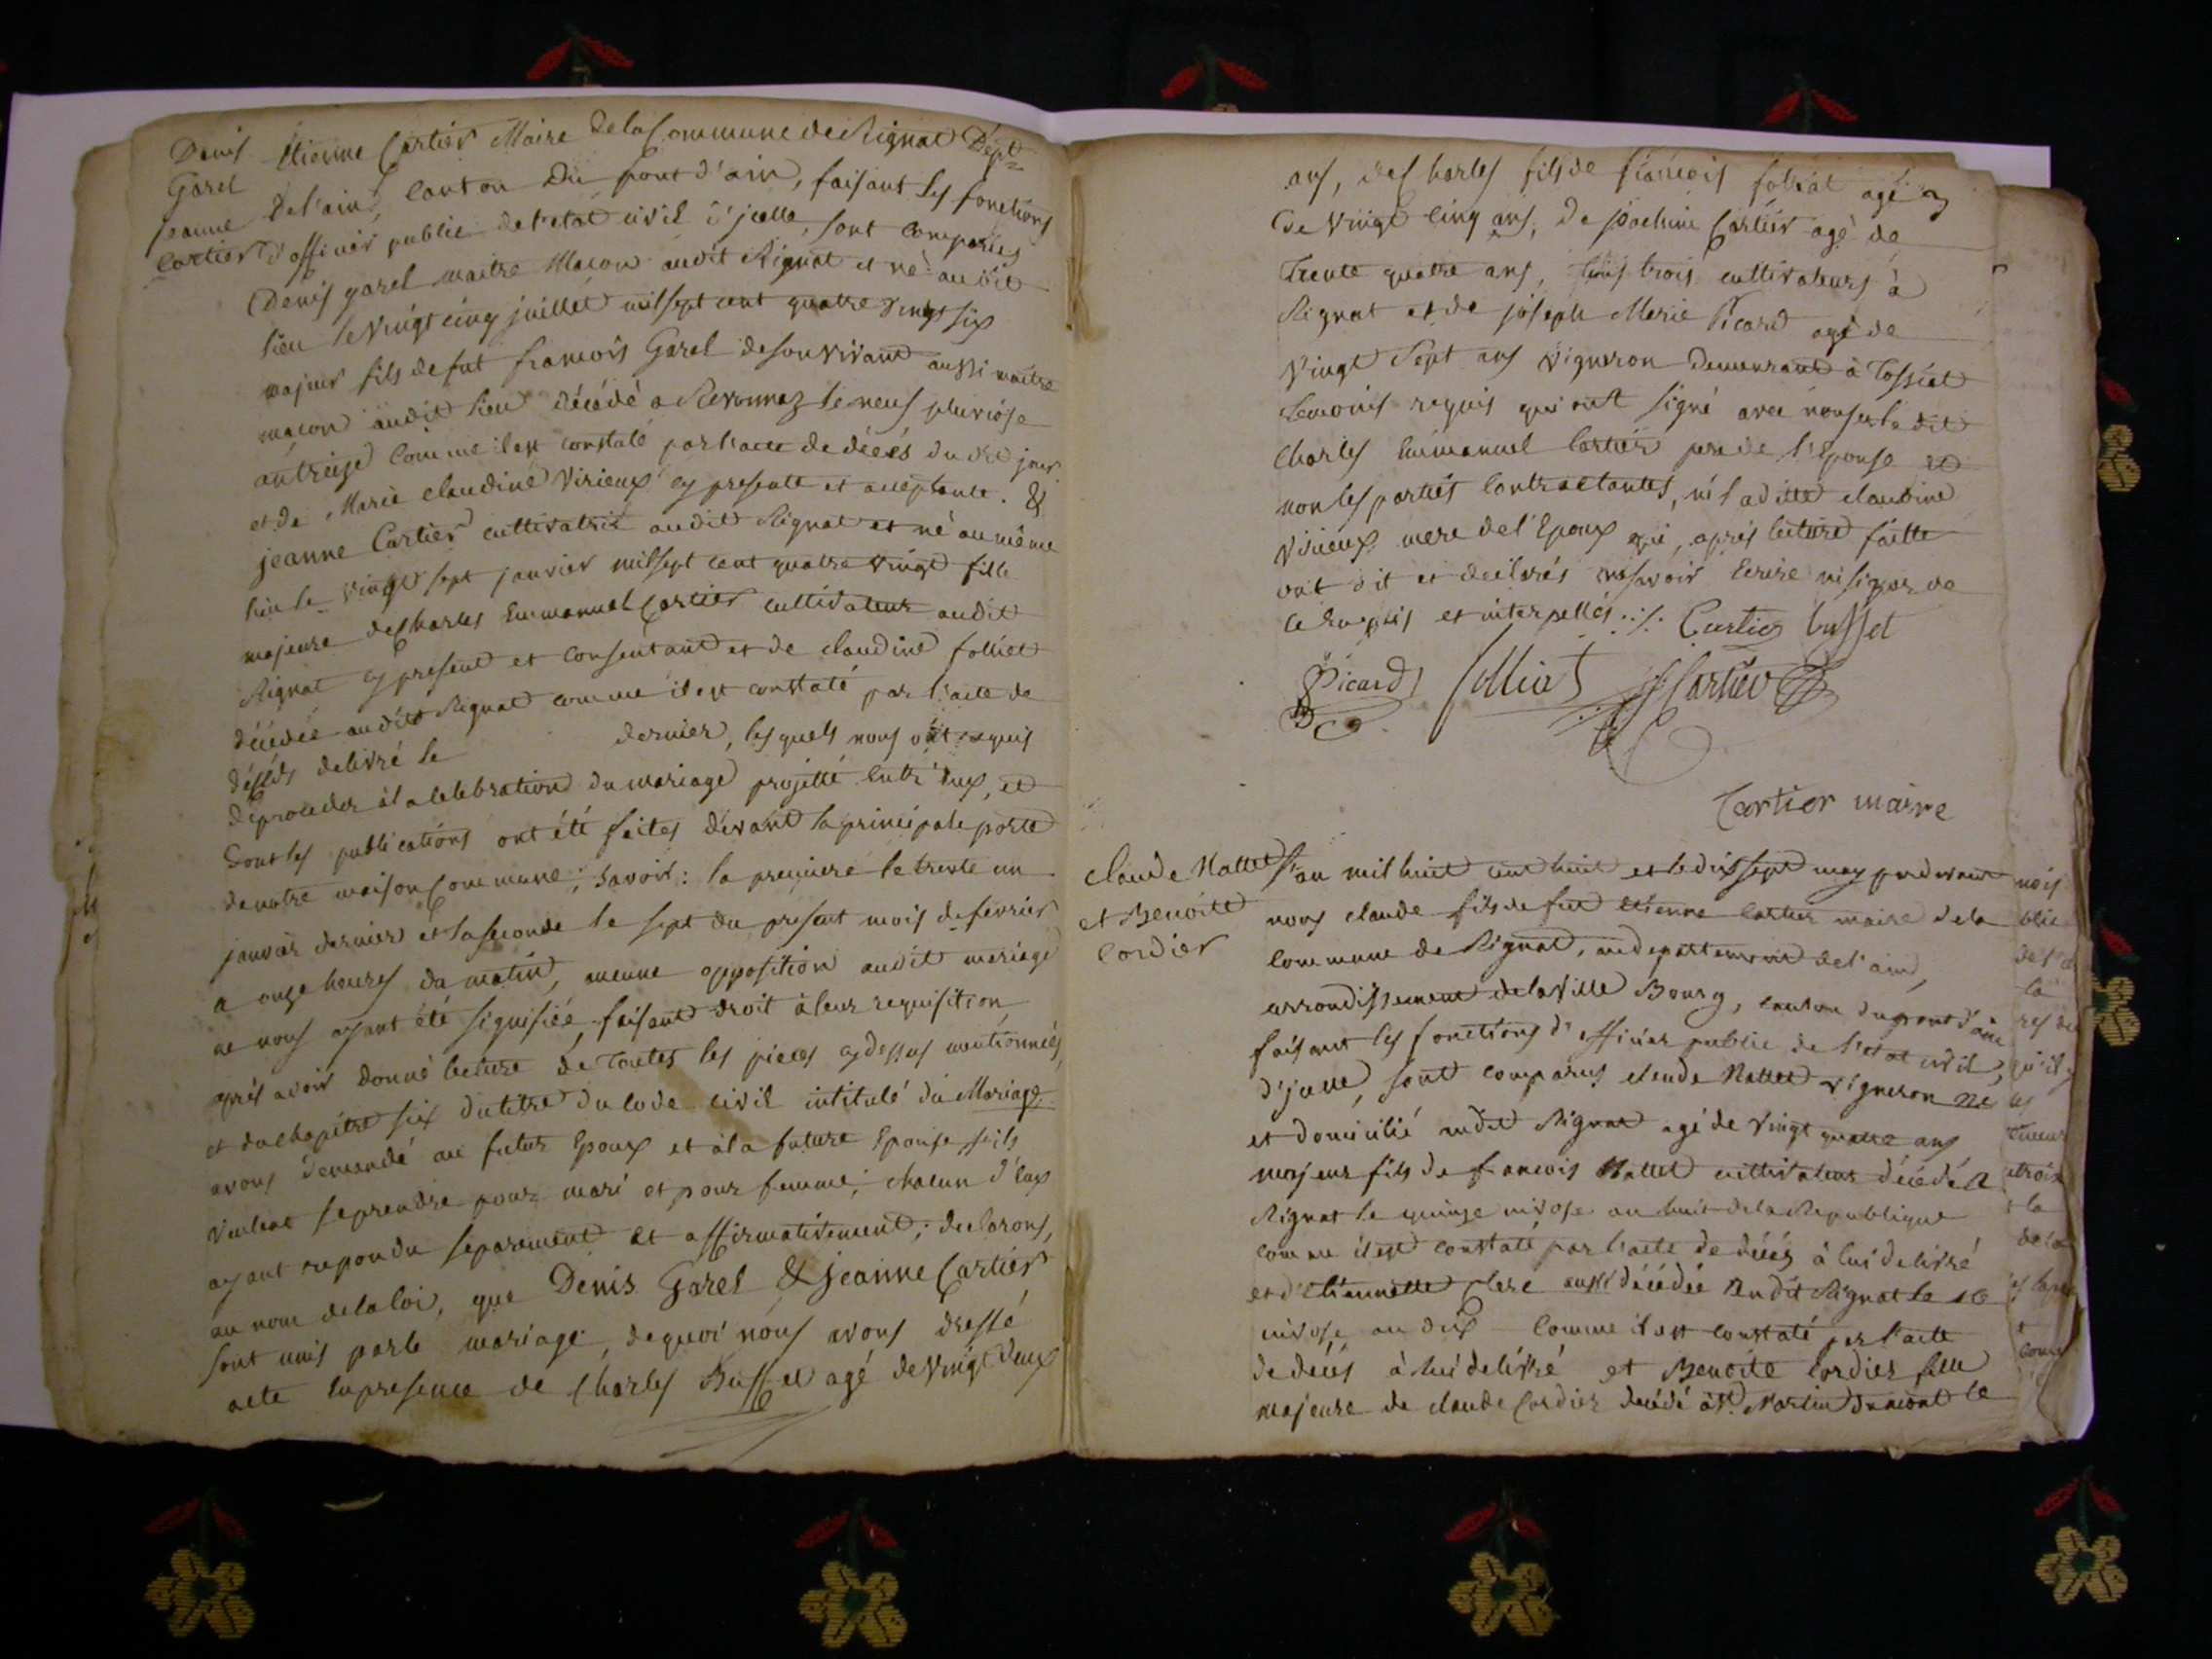 Denis Garel Jeanne Cartier
Etienne Cartier Maire de la Commune de Rignat Dépt
De l'ain, canton Du pont d'ain, faisant les fonctions
d'officier public de l'etat civil d'jcelle, sont comparus
Denis garel maitre Macon audit Rignat et né audit
lieu le vingt cinq juillet mil sept cent quatre vingt six
majeur fils de fut francois Garel de son vivant aussi maitre
macon audit lieu décédé a Revonnaz le neuf pluviose
an treize comme il est constaté par l'acte de décés du dit jour
et de Marie claudine Virieux cy presente et acceptante. &
jeanne Cartier cultivatrice audit Rignat et né au même
lieu le vingt sept janvier mil sept cent quatre vingt fille
majeure de Charles Emmanuel Cartier cultivateur audit
Rignat cy present et consentant et de claudine folliet
décédée audit Rignat comme il est constaté par l'acte de
décés delivré le dernier, lesquels nous ont requis
de proceder à la celebration du mariage projetté entr'eux, et
dont les publications ont été faites devant la principale porte
de notre maison Commune; savoir: la premiere le trente un
janvier dernier et la seconde le sept du present mois de fevrier
a onze heures du matin, aucune opposition audit mariage
ne nous ayant été signifiée, faisant droit à leur requisition
aprés avoir donné lecture de toutes les pieces cy dessus mentionnées
et du chapitre six du titre du code civil intitulé du Mariage
avons demandé au futur Epoux et à la future Epouse s'ils
veulent se prendre pour mari et pour femme; chacun d'eux
ayant repondu separement et affirmativement; declarons,
au nom de la loi, que Denis Garel & jeanne Cartier
sont unis par le mariage, de quoi nous avons dressé
acte En presence de Charles Buffet agé de vingt deux
ans, de Charles fils de francois foliat agé
de vingt cinq ans, de joachim Cartier agé de
trente quatre ans, tous trois cultivateurs à
Rignat et de joseph Marie Picard agé de
vingt Sept ans vigneron demeurant à Tossiat
temoins requis qui ont signé avec nous et le dit
Charles Emmanuel Cartier pere de l'Epouse et
non les parties contractantes, ni laditte claudine
Virieux mere de l'Epoux qui, aprés lecture faitte
ont dit et declarés ne savoir Ecrire ni signer de
ce requis et interpellés ./. Cartier buffet
Picard folliat Cartier
Cartier maire
claude Nallet et Benoite Cordier
l'an mil huit cent huit et le dix sept may par devant
nous claude fils de fut etienne cartier maire de la
commune de Rignat, au departement de l'ain,
arrondissement de la ville Bourg, canton du pont d'ain
faisant les fonctions d'officier public de l'etat civil,
d'jcelle, sont comparus claude Nallet vigneron né
et domicilié audit Rignat agé de vingt quatre ans
majeur fils de francois Nallet cultivateur décédé a
Rignat le quinze nivose an huit de la Republique
comme il est constaté par l'acte de décés à lui delivré
et d'Etiennette Clerc aussi décédée audit Rignat le
nivose an dix comme il est constaté par l'acte
de decés à lui delivré et Benoite Cordier fille
majeure de claude Cordier decédé à St. Martin du mont le